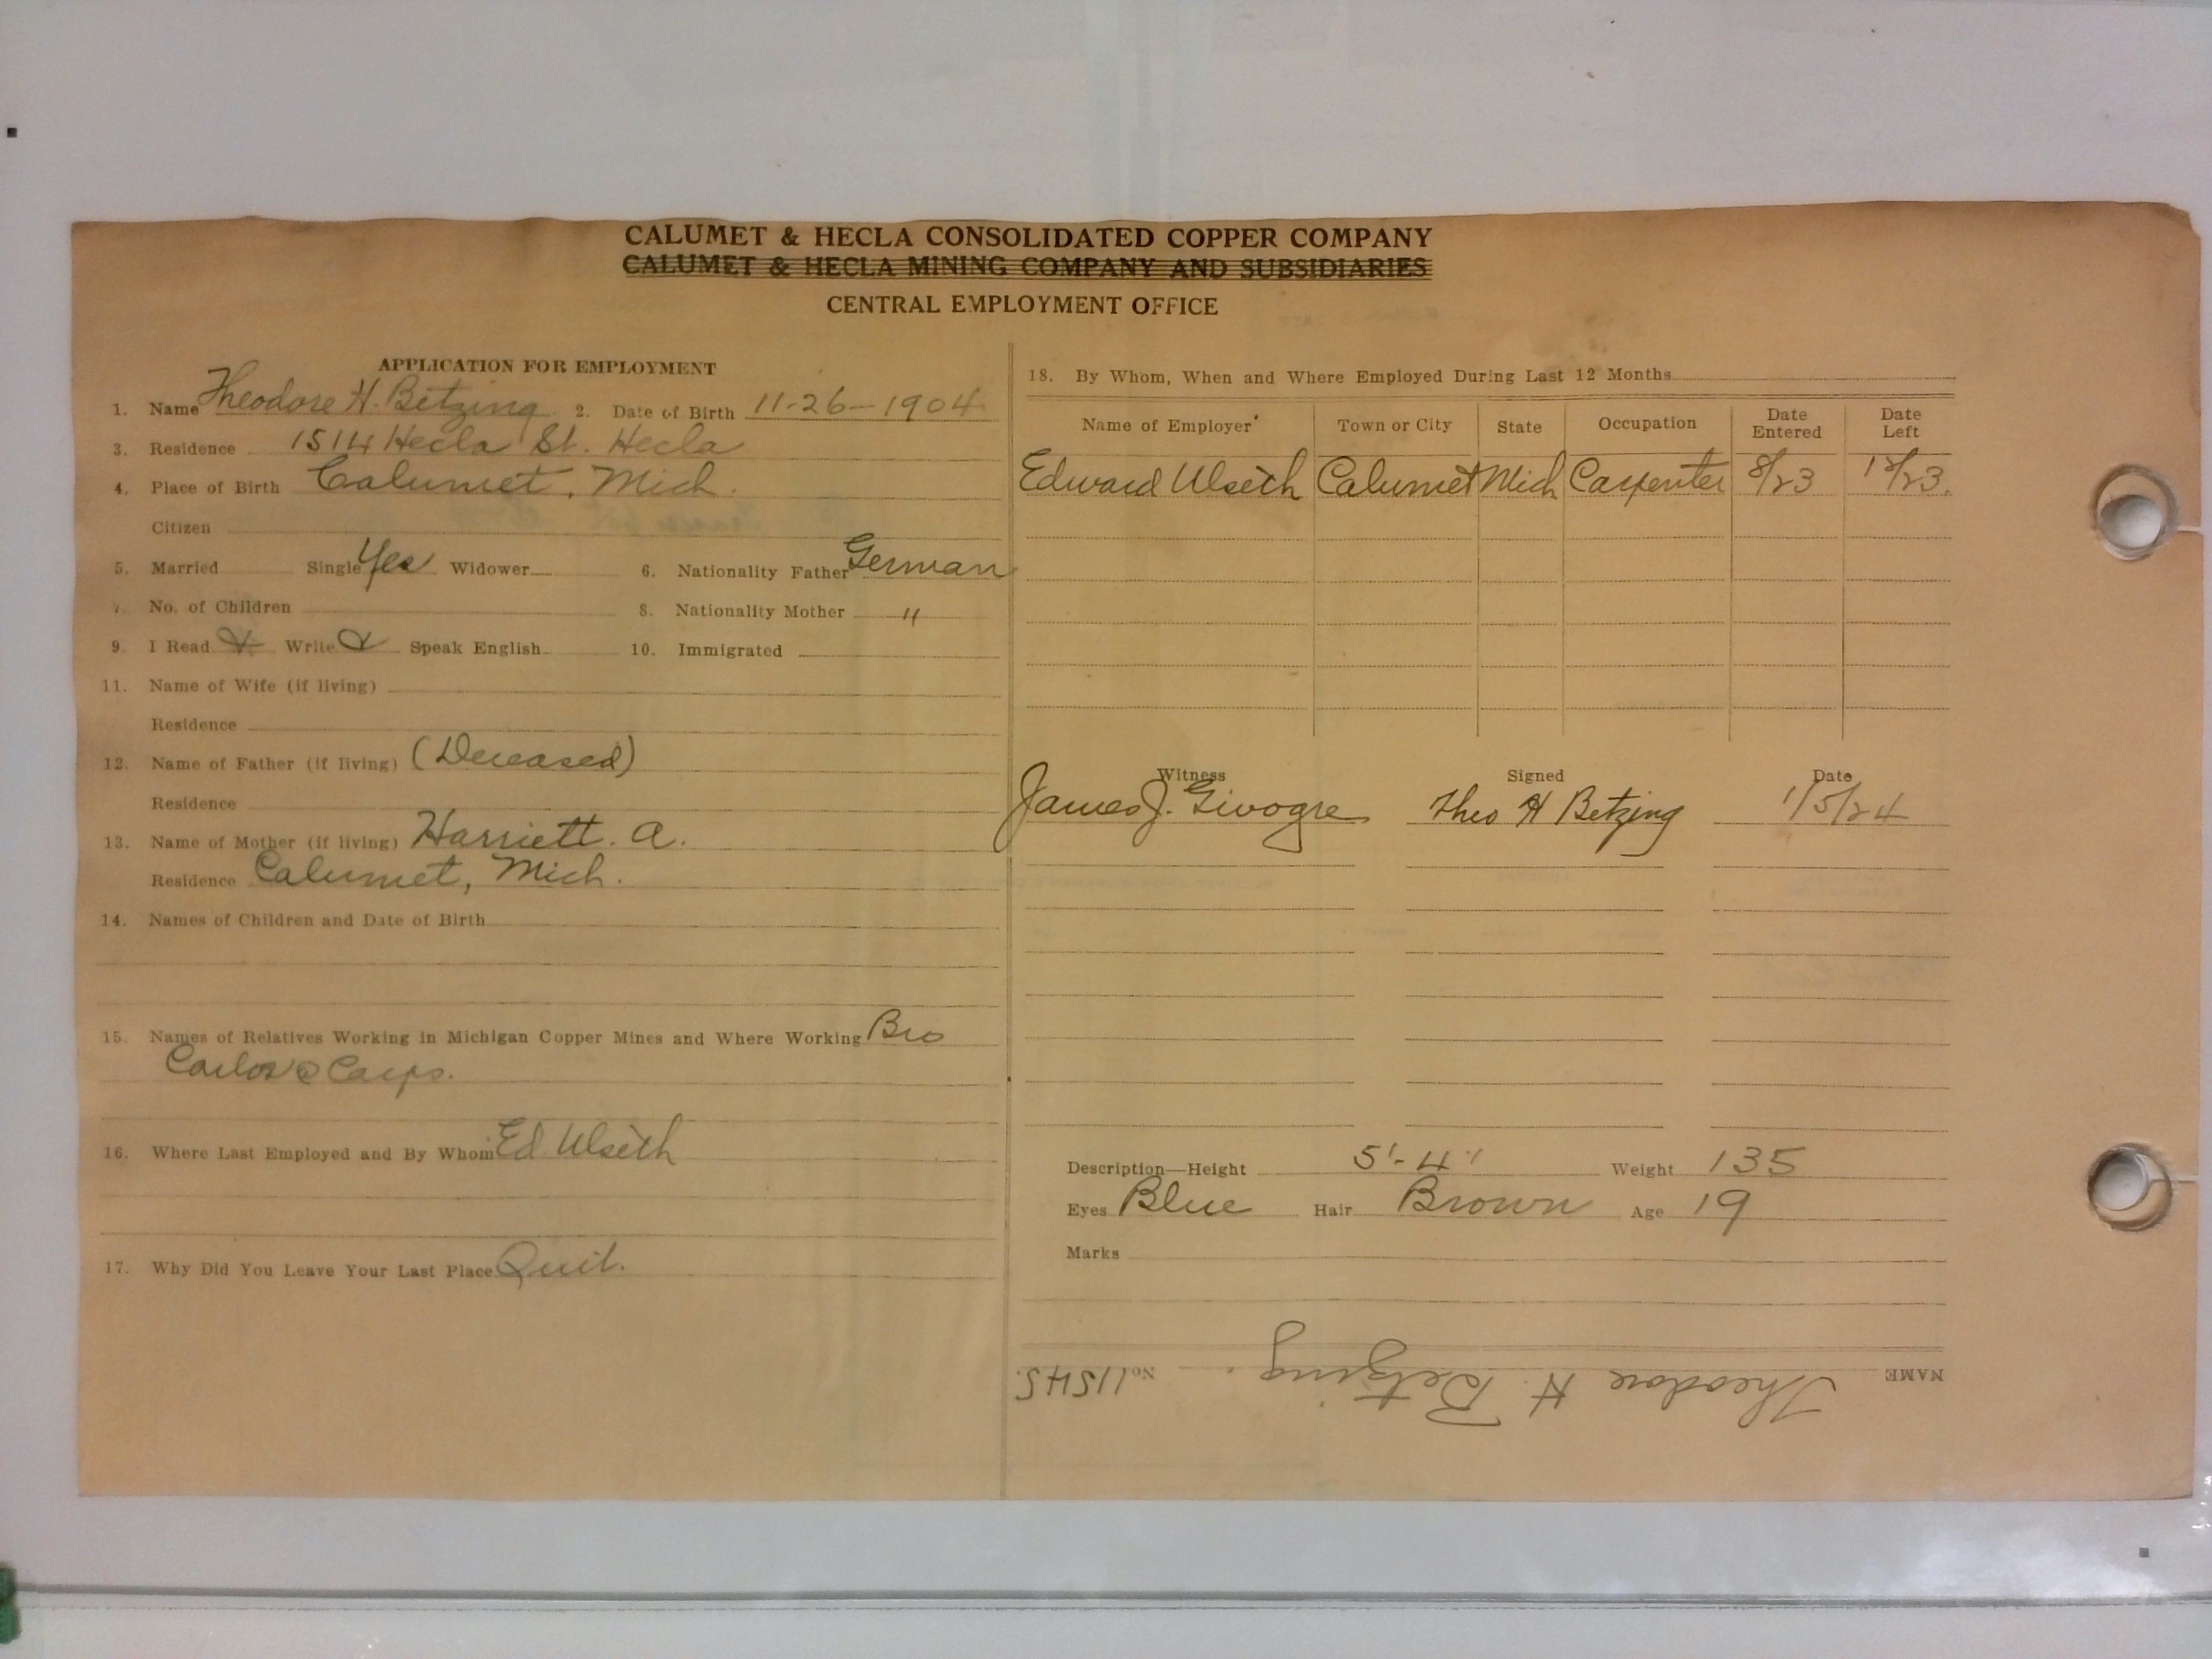 CALUMET & HECLA CONSOLIDATED COPPER COMPANY
CALUMET & HECLA MINING COMPANY AND SUBSIDIARIES
CENTRAL EMPLOYMENT OFFICE
APPLICATION FOR EMPLOYMENT
1. Name Theodore H. Betzing 2. Date of Birth 11-26-1904
3. Residence 1514 Hecla St. Hecla
4. Place of Birth Calumet, Mich.
Citizen
5. Married Single Yes Widower 6. Nationality Father German
7. No. of Children 8. Nationality Mother "
9. I Read & Write & Speak English 10. Immigrated
11. Name of Wife (if living)
Residence
12. Name of Father (if living) (Deceased)
Residence
13. Name of Mother (if living) Harriett. A.
Residence Calumet, Mich.
14. Names of Children and Date of Birth
15. Names of Relatives Working in Michigan Copper Mines and Where Working Bro
Carlos @ Carps.
16. Where Last Employed and By Whom Ed Ulseth
17. Why Did You Leave Your Last Place Quit.
18. By Whom, When and Where Employed During Last 12 Months
Name of Employer Town or City State Occupation Date Entered Date Left
Edward Ulseth Calumet Mich Carpenter 8/23 12/23.
Witness Signed Date
James J. Givogre Theo H Betzing 1/5/24
Description—Height 5'-4" Weight 135
Eyes Blue Hair Brown Age 19
Marks
NAME Theodore H. Betzing. No. 11545.